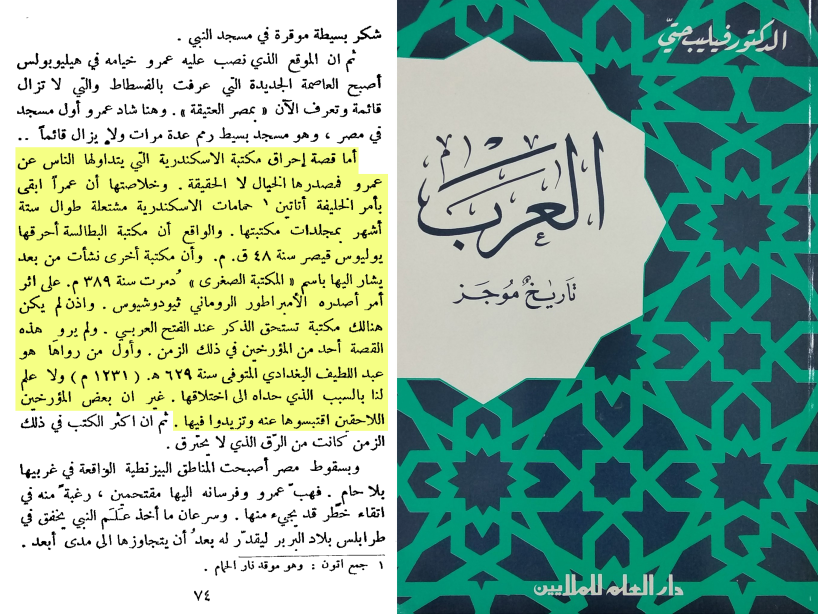 شكر بسيطة موقرة في مسجد النبي .
ثم ان الموقع الذي نصب عليه عمرو خيامه في هيليوبولس
أصبح العاصمة الجديدة التي عرفت بالفسطاط والتي لا تزال
قائمة وتعرف الآن « بمصر العتيقة » . وهنا شاد عمرو أول مسجد
في مصر ، وهو مسجد بسيط رمم عدة مرات ولا يزال قائماً ..
أما قصة إحراق مكتبة الاسكندرية التي يتداولها الناس عن
عمرو فمصدرها الخيال لا الحقيقة . وخلاصتها أن عمراً ابقى
بأمر الخليفة أتاتين ١ حمامات الاسكندرية مشتعلة طوال ستة
أشهر بمجلدات مكتبتها . والواقع أن مكتبة البطالسة أحرقها
يوليوس قيصر سنة ٤٨ ق. م. وأن مكتبة أخرى نشأت من بعد
يشار اليها باسم « المكتبة الصغرى » دُمرت سنة ٣٨٩ م. على اثر
أمر أصدره الأمبراطور الروماني ثيودوشيوس . واذن لم يكن
هنالك مكتبة تستحق الذكر عند الفتح العربي . ولم يرو هذه
القصة أحد من المؤرخين في ذلك الزمن . وأول من رواها هو
عبد اللطيف البغدادي المتوفى سنة ٦٢٩ هـ. ( ١٢٣١ م ) ولا علم
لنا بالسبب الذي حداه الى اختلاقها . غير ان بعض المؤرخين
اللاحقين اقتبسوها عنه وتزيدوا فيها . ثم ان اكثر الكتب في ذلك
الزمن كانت من الرق الذي لا يحترق .
وبسقوط مصر أصبحت المناطق البيزنطية الواقعة في غربيها
بلا حام . فهبّ عمرو وفرسانه اليها مقتحمين ، رغبة منه في
اتقاء خطر قد يجيء منها . وسرعان ما أخذ عَلَم النبي يخفق في
طرابلس بلاد البربر ليقدّر له بعدُ أن يتجاوزها الى مدى أبعد .
١ جمع اتون : وهو موقد نار الحمام .
٧٤
الدكتور فيليب حتي
العرب
تاريخ موجز
دار العلم للملايين